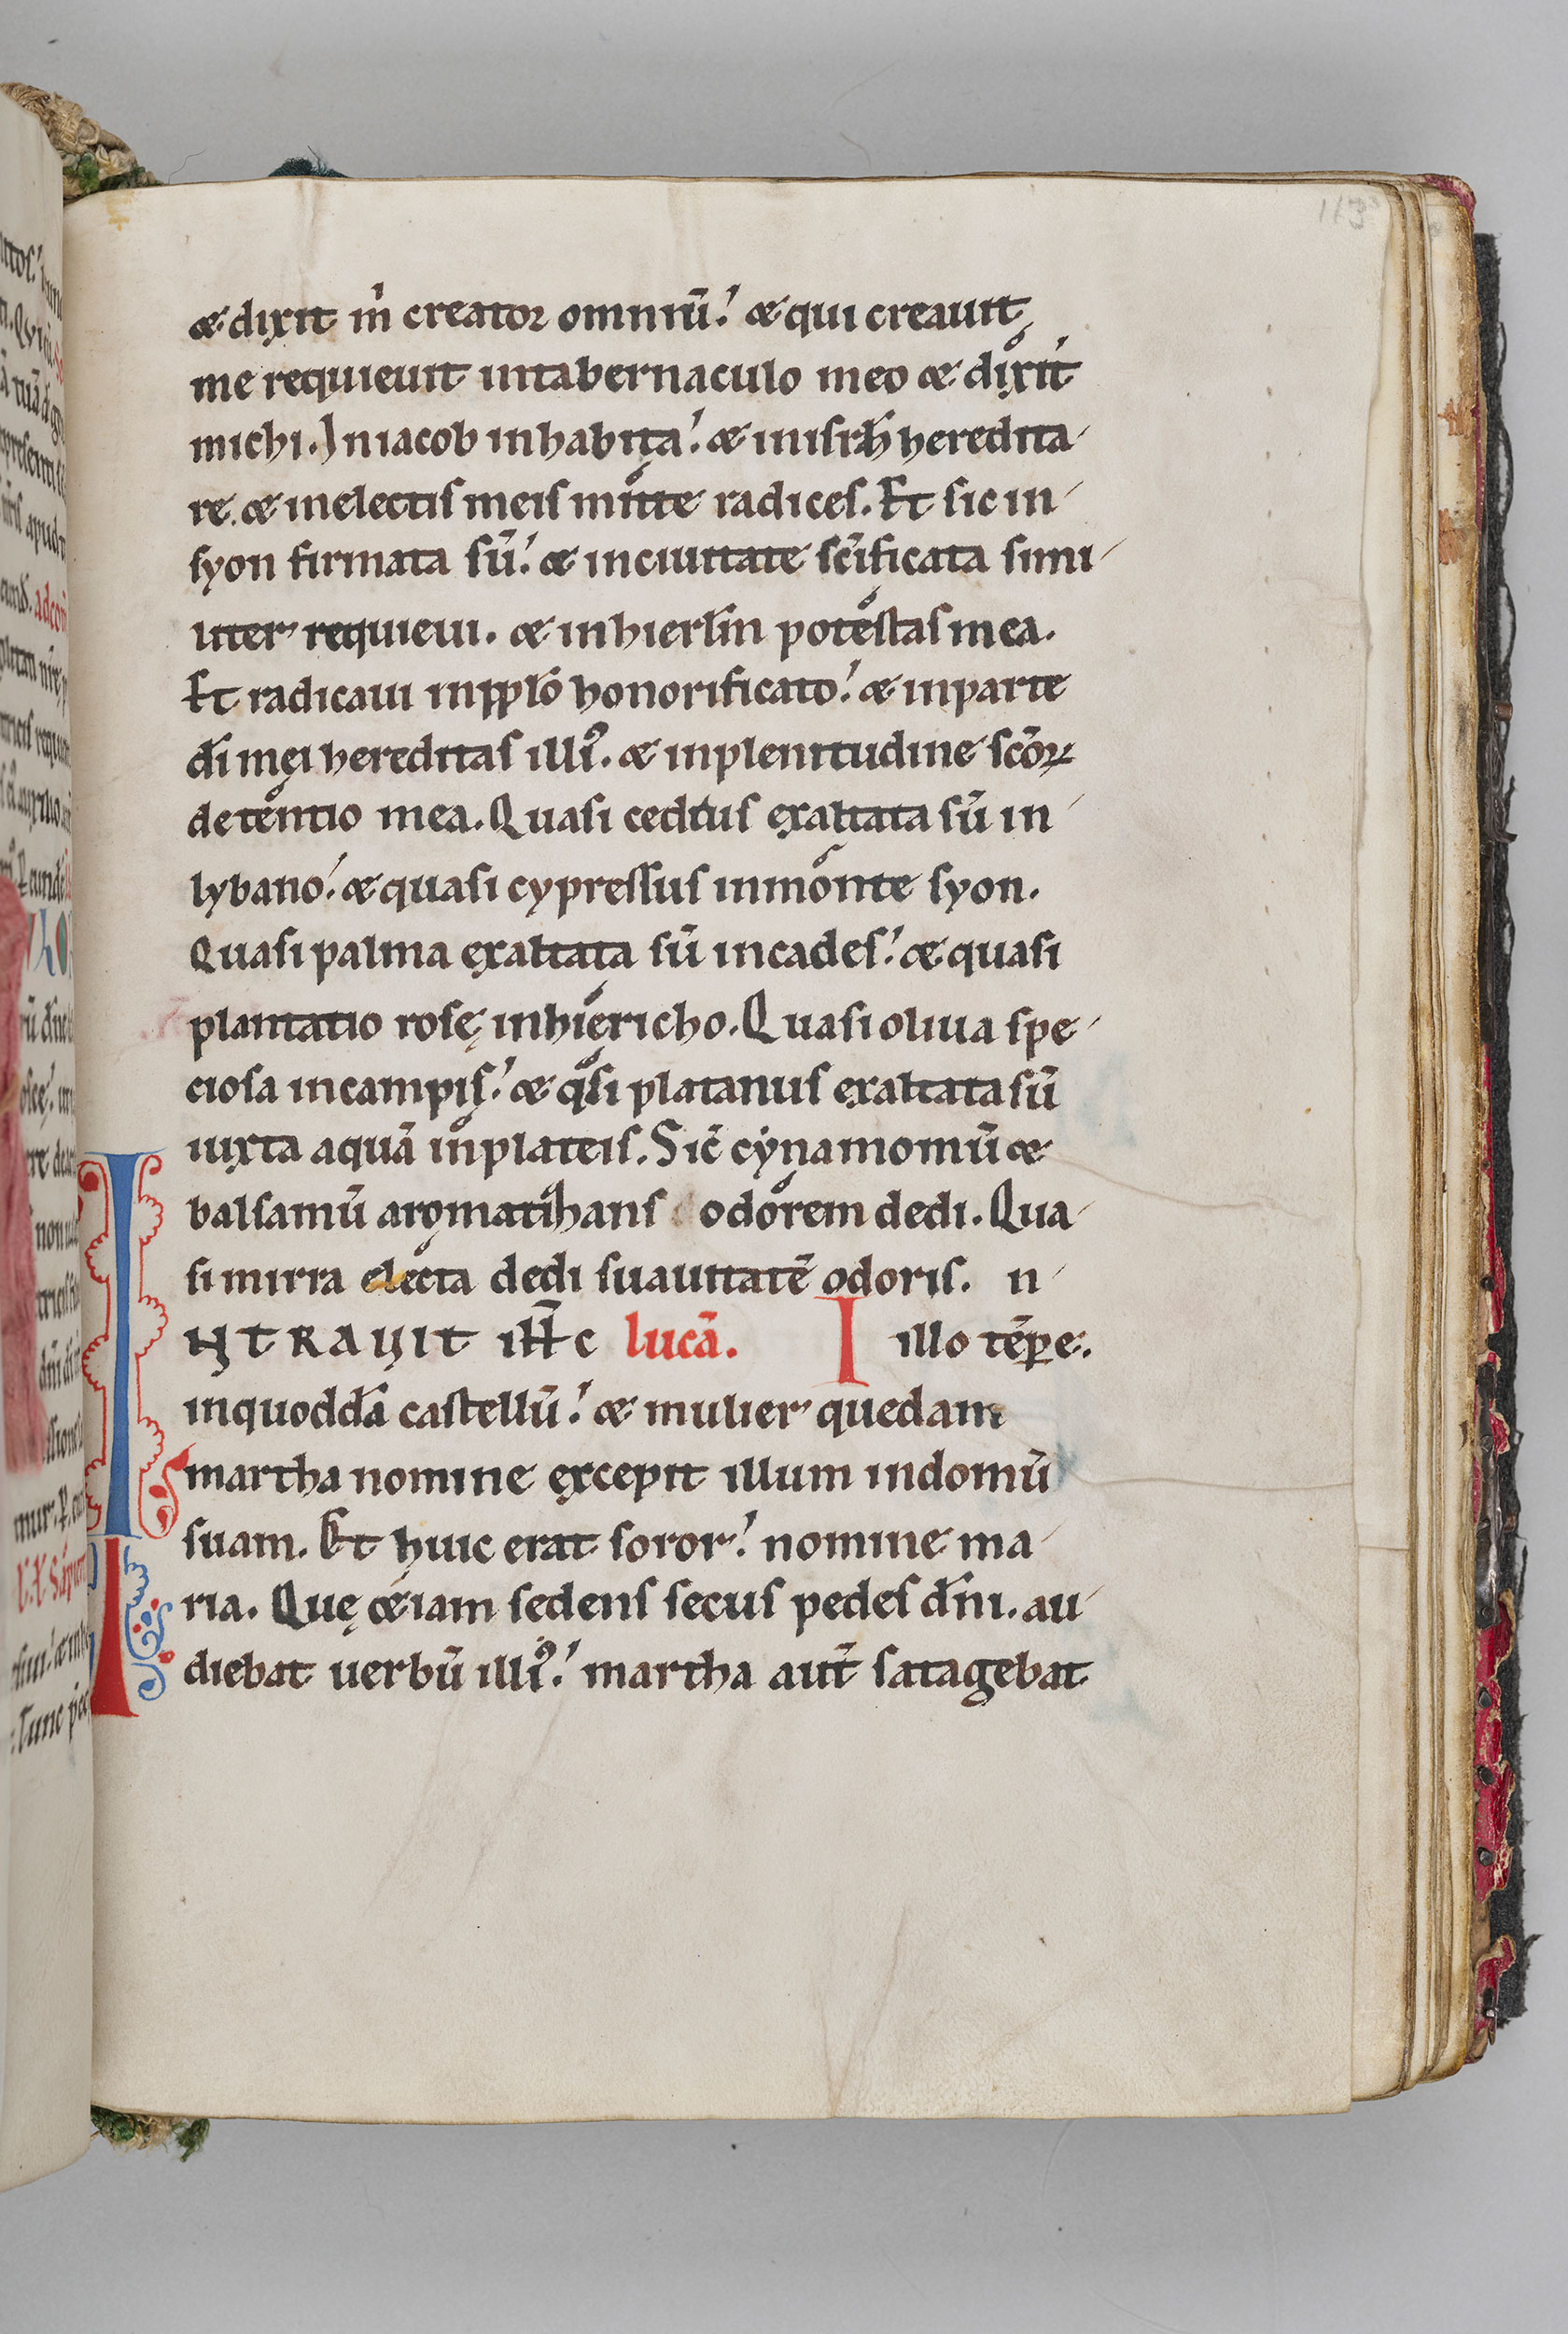 113
& dixit m̄ creator omniū. & qui creauit
me requieuit intabernaculo meo & dixit
michi. Iniacob inhabita. & inisrł heredita-
re. & inelectis meis mitte radices. Et sic in
syon firmata sū. & inciuitate scīficata simi-
liter requieui. & inhierłm potestas mea.
Et radicaui inpplō honorificato. & inparte
dī mei hereditas illi᷒. & inplenitudine scōꝝ
detentio mea. Quasi cedrus exaltata sū in
lybano. & quasi cypressus inmonte syon.
Quasi palma exaltata sū incades. & quasi
plantatio rosę inhiericho. Quasi oliua spe-
ciosa incampis. & qͣsi platanus exaltata sū
iuxta aquā inplateis. Sic̄ cynamomū &
balsamū aromatizans odorem dedi. Qua-
si mirra electa dedi suauitatē odoris. n
INTRAUIT iħc lucā. I illo tēꝑe.
inquoddā castellū. & mulier quedam
martha nomine excepit illum indomū
suam. Et huic erat soror. nomine ma-
ria. Quę &iam sedens secus pedes dn̄i. au-
diebat uerbū illi᷒. martha aut̄ satagebat